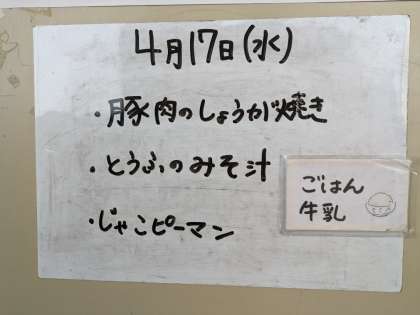 4月17日(水)
・豚肉のしょうが焼き
・とうふのみそ汁
・じゃこピーマン
ごはん
牛乳